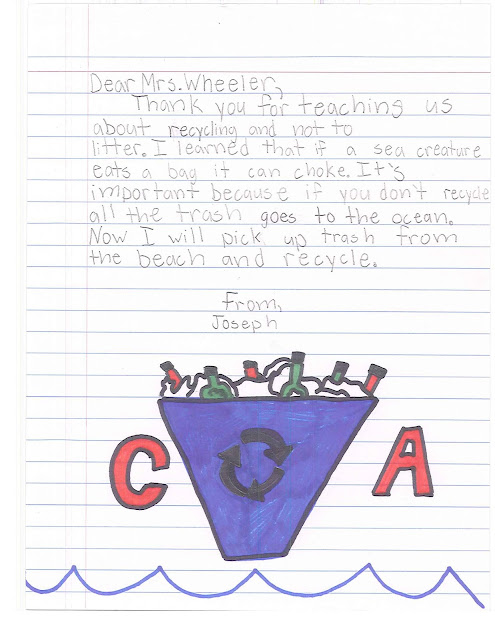 Dear Mrs. Wheeler,
Thank you for teaching us
about recycling and not to
litter. I learned that if a sea creature
eats a bag it can choke. It's
important because if you don't recycle
all the trash goes to the ocean.
Now I will pick up trash from
the beach and recycle.
From,
Joseph
C A